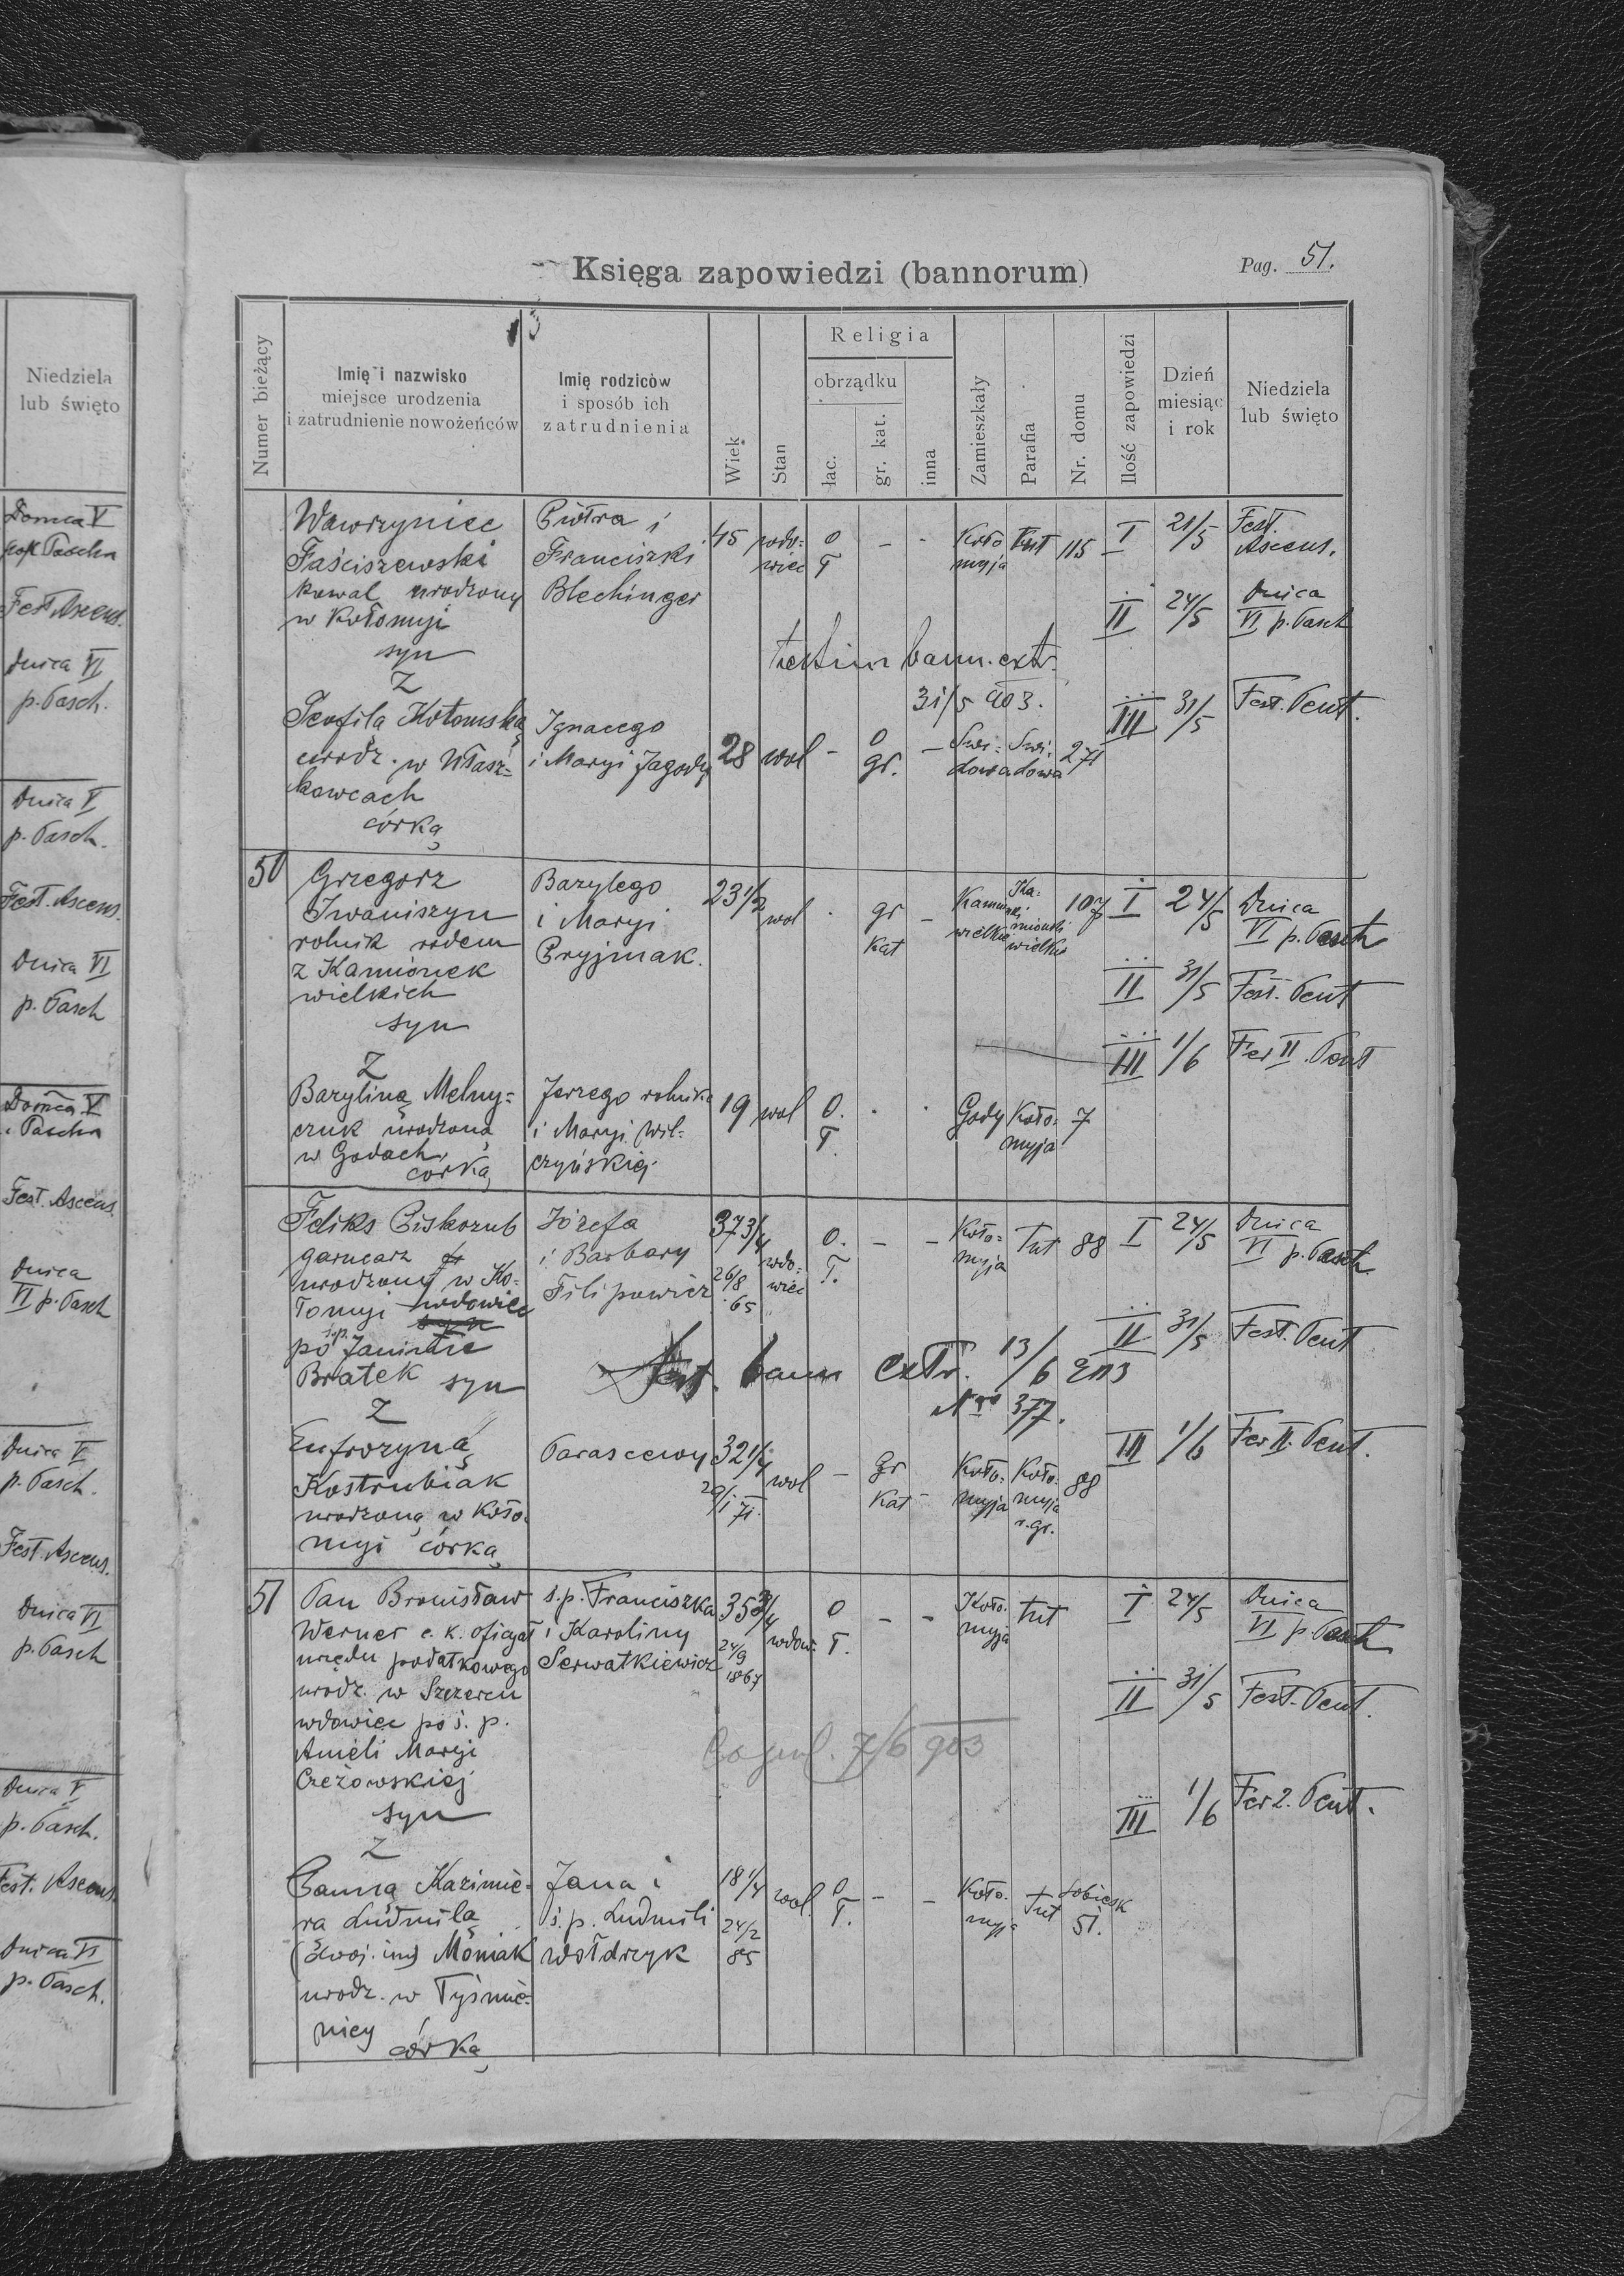 Niedziela
lub święto
Domca V
post Pascha
Fest Ascens.
Dnica VI
p. Pasch.
Dnica V
p. Pasch.
Fest. Ascens.
Dnica VI
p. Pasch
Domca V
p. Pascha
Fest. Ascens.
Dnica
VI p. Pasch
Dnica V
p. Pasch.
Fest. Ascens.
Dnica VI
p. Pasch
Dnica V
p. Pasch.
Fest. Ascens.
Dnica VI
p. Pasch.
Księga zapowiedzi (bannorum)
Pag. 51.
Numer bieżący
Imię i nazwisko
miejsce urodzenia
i zatrudnienie nowożeńców
Imię rodziców
i sposób ich
zatrudnienia
Wiek
Stan
Religia
obrządku
łac.
gr. kat.
inna
Zamieszkały
Parafia
Nr. domu
Ilość zapowiedzi
Dzień
miesiąc
i rok
Niedziela
lub święto
Wawrzyniec
Faściszewski
kowal urodzony
w Kołomyji
syn
Piotra i
Franciszki
Blechinger
45
wdo-
wiec
o
ł
- -
Koło-
myja
tut
115
I 21/5 Fest.
Ascens.
II 24/5 Dnica
VI p. Pasch
testim bann. extr.
31/5 903.
III 31/5 Fest. Pent.
z
Teofilą Kotomską
urodz. w Ułasz-
kowcach
córką
Ignacego
i Maryi Jagody
28 wol -
o
gr.
-
Swi-
dowa
Swi-
dowa
271
50
Grzegorz
Iwaniszyn
rolnik rodem
z Kamionek
wielkich
syn
Bazylego
i Maryi
Pryjmak.
23 1/2
wol
.
gr
kat
-
Kamionki
wielkie
Ka-
mionki
wielkie
107
I 24/5 Dnica
VI p. Pasch
II 31/5 Fest. Pent
III 1/6 Fer II. Pent
z
Bazyliną Melny-
czuk urodzoną
w Godach,
córką
Jerzego rolnika
i Maryi Wil-
czyńskiej
19 wol
O.
ł.
. .
Gody
Koło-
myja
7
Feliks Piskozub
garncarz
urodzony w Ko-
łomyi wdowiec
syn
po ś.p. Janinie
Bratek syn
Józefa
i Barbary
Filipowicz
37 3/4
26/8
65
wdo-
wiec
O.
ł.
- -
Koło-
myja
tut 88
I 24/5 Dnica
VI p. Pasch.
II 31/5 Fest. Pent
Test. bann extr. 13/6 903
Nro 377.
III 1/6 Fer II. Pent.
z
Eufrozyną
Kostrubiak
urodzoną w Koło-
myi córką
Parascewy
32 1/4
29/I 71.
wol -
gr
kat -
Koło-
myja
Koło-
myja
r. gr.
88
51
Pan Bronisław
Werner c. k. oficyał
urzędu podatkowego
urodz. w Szczercu
wdowiec po ś. p.
Anieli Maryi
Czeżowskiej
syn
ś. p. Franciszka
i Karoliny
Serwatkiewicz
35 3/4
24/9
1867
wdow.
O
ł.
- -
Koło-
myja
tut
I 24/5 Dnica
VI p. Pasch
II 31/5 Fest. Pent.
Copul. 7/6 903
III 1/6 Fer 2. Pent.
z
Panną Kazimie-
ra Ludmiłą
(dwoj. im) Moniak
urodz. w Tyśmie-
nicy
córką
Jana i
ś. p. Ludmili
Wołdrzyk
18 1/4
24/2
85
wol.
O
ł.
- -
Koło-
myja
tut
Sobiesk
51.